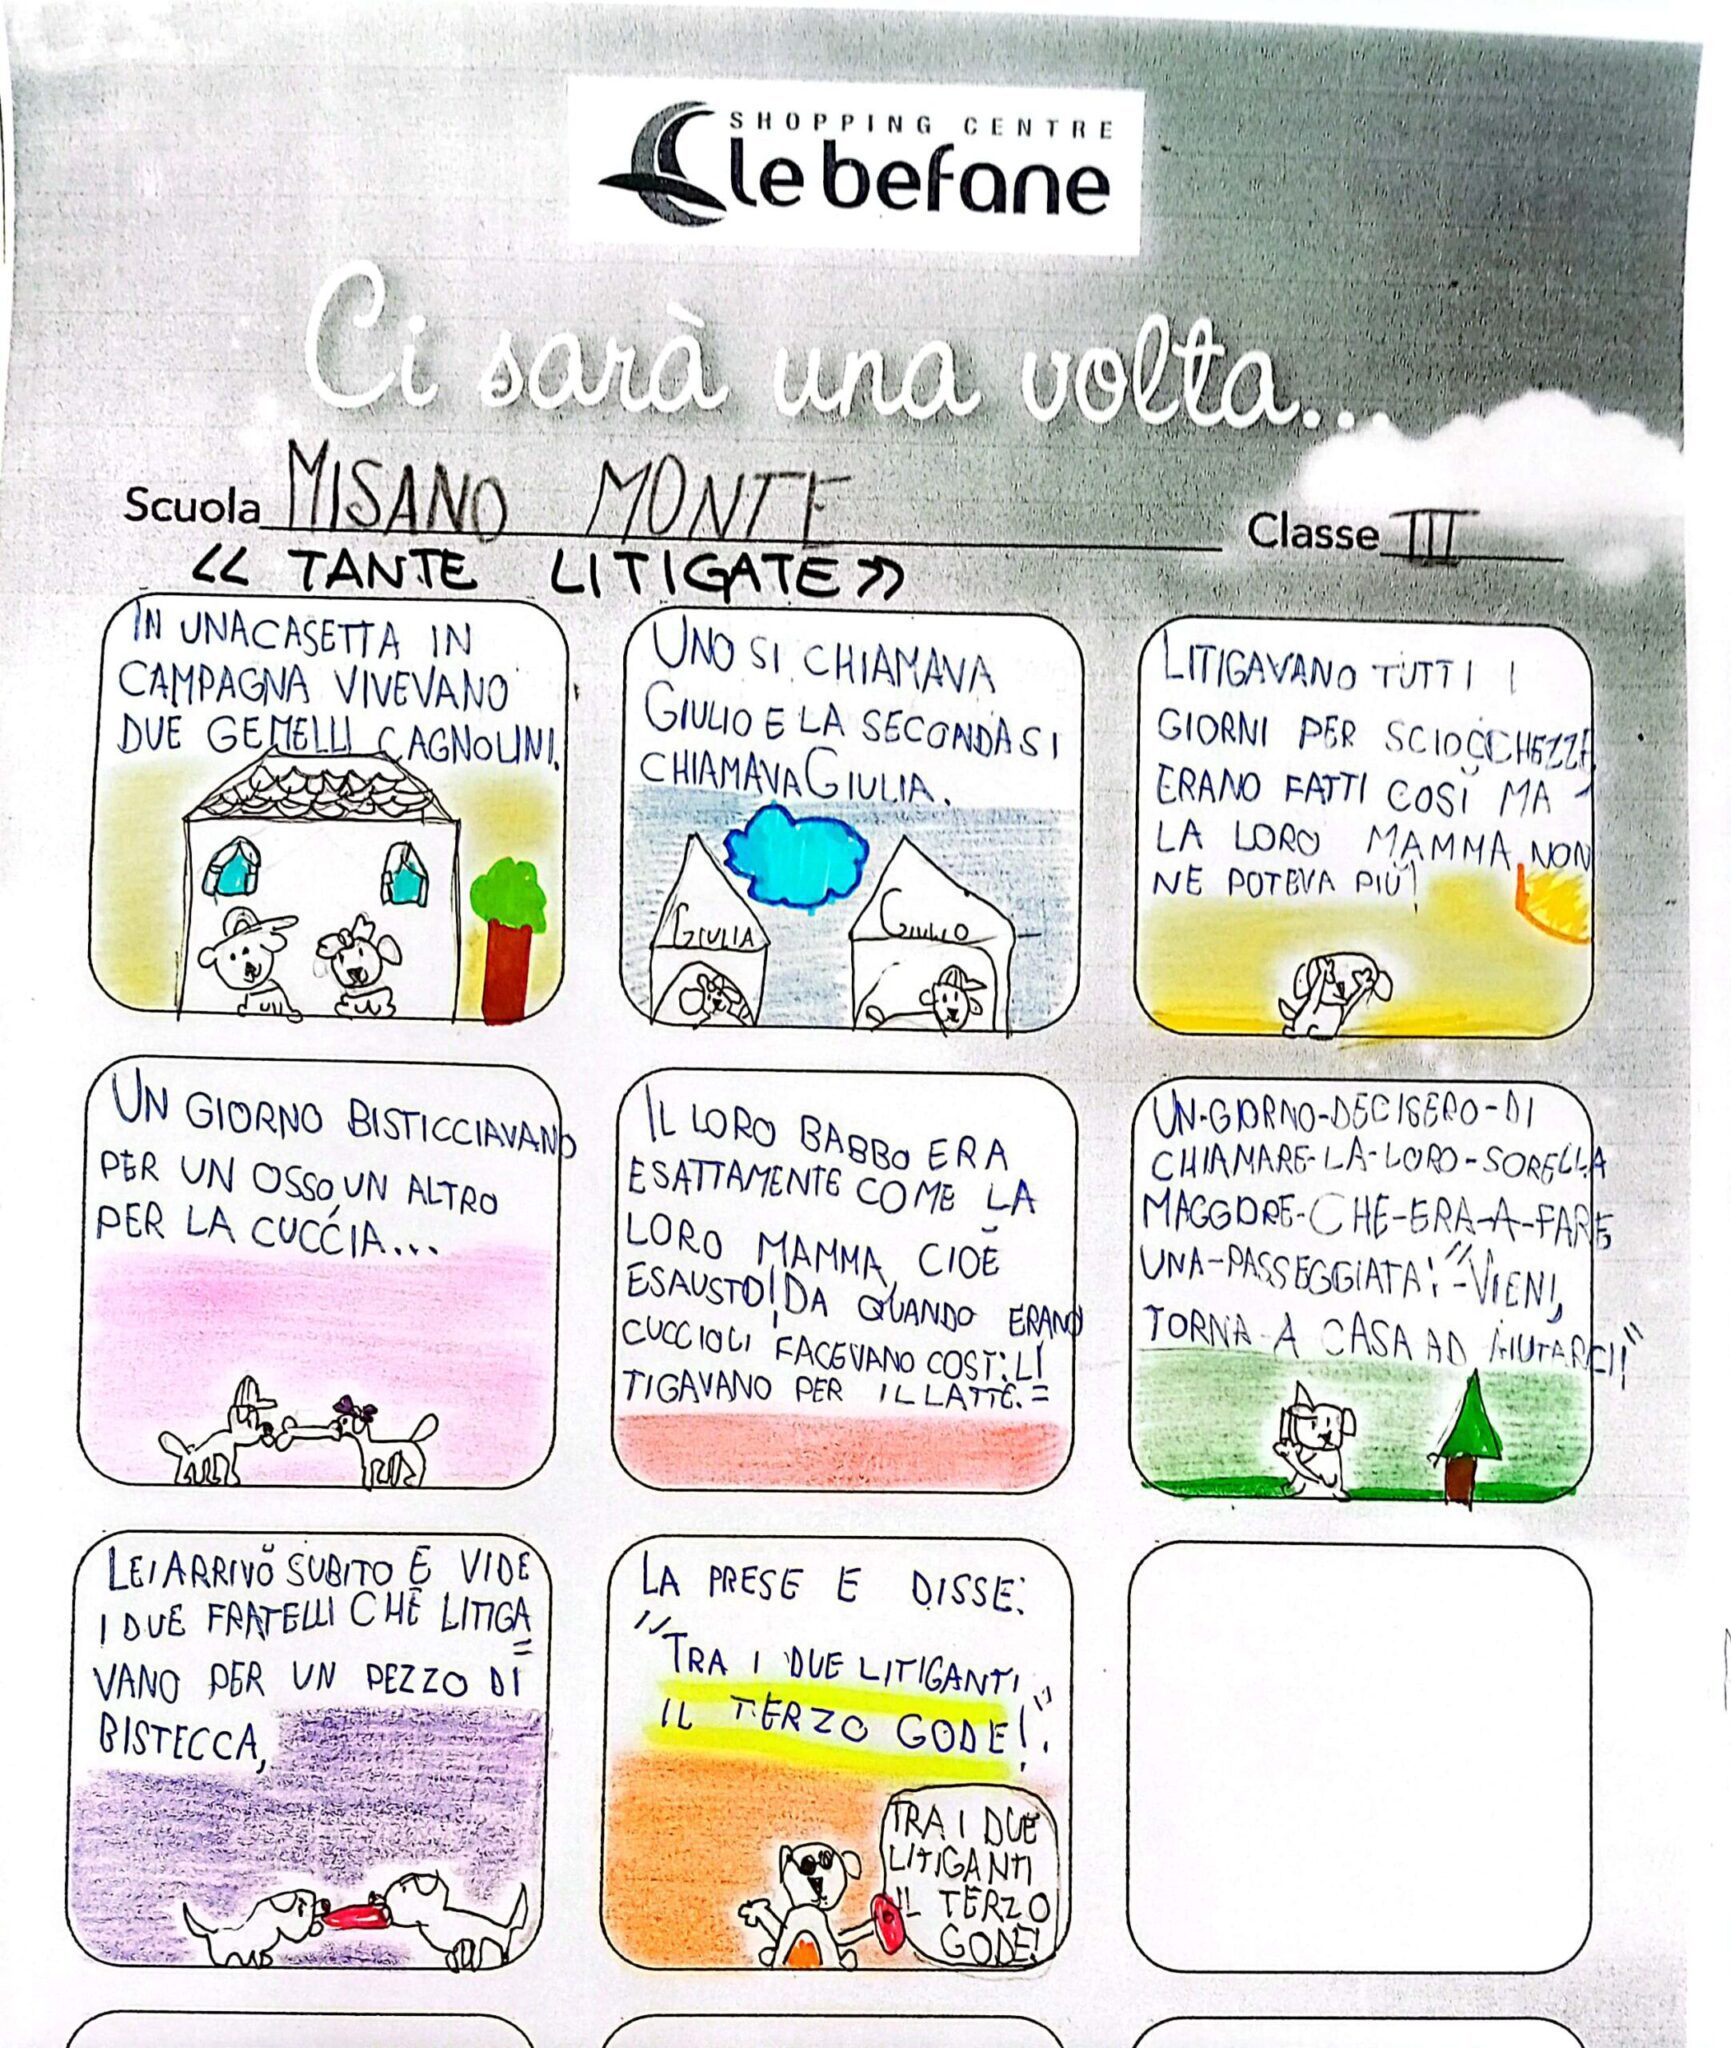 SHOPPING CENTRE
le befane
Ci sarà una volta...
Scuola MISANO MONTE Classe III
<< TANTE LITIGATE >>
IN UNACASETTA IN
CAMPAGNA VIVEVANO
DUE GEMELLI CAGNOLINI.
UNO SI CHIAMAVA
GIULIO E LA SECONDA SI
CHIAMAVA GIULIA.
GIULIA
GIULIO
LITIGAVANO TUTTI I
GIORNI PER SCIOCCHEZZE,
ERANO FATTI COSÌ MA
LA LORO MAMMA NON
NE POTEVA PIÙ!
UN GIORNO BISTICCIAVANO
PER UN OSSO, UN ALTRO
PER LA CUCCIA...
IL LORO BABBO ERA
ESATTAMENTE COME LA
LORO MAMMA, CIOÈ
ESAUSTO! DA QUANDO ERANO
CUCCIOLI FACEVANO COSÌ: LI
TIGAVANO PER IL LATTE. =
UN-GIORNO-DECISERO-DI
CHIAMARE-LA-LORO-SORELLA
MAGGIORE-CHE-ERA-A-FARE
UNA-PASSEGGIATA: "-VIENI,
TORNA A CASA AD AIUTARCI!"
LEI ARRIVÒ SUBITO E VIDE
I DUE FRATELLI CHE LITIGA=
VANO PER UN PEZZO DI
BISTECCA,
LA PRESE E DISSE:
"TRA I DUE LITIGANTI
IL TERZO GODE!".
TRA I DUE
LITIGANTI
IL TERZO
GODE!